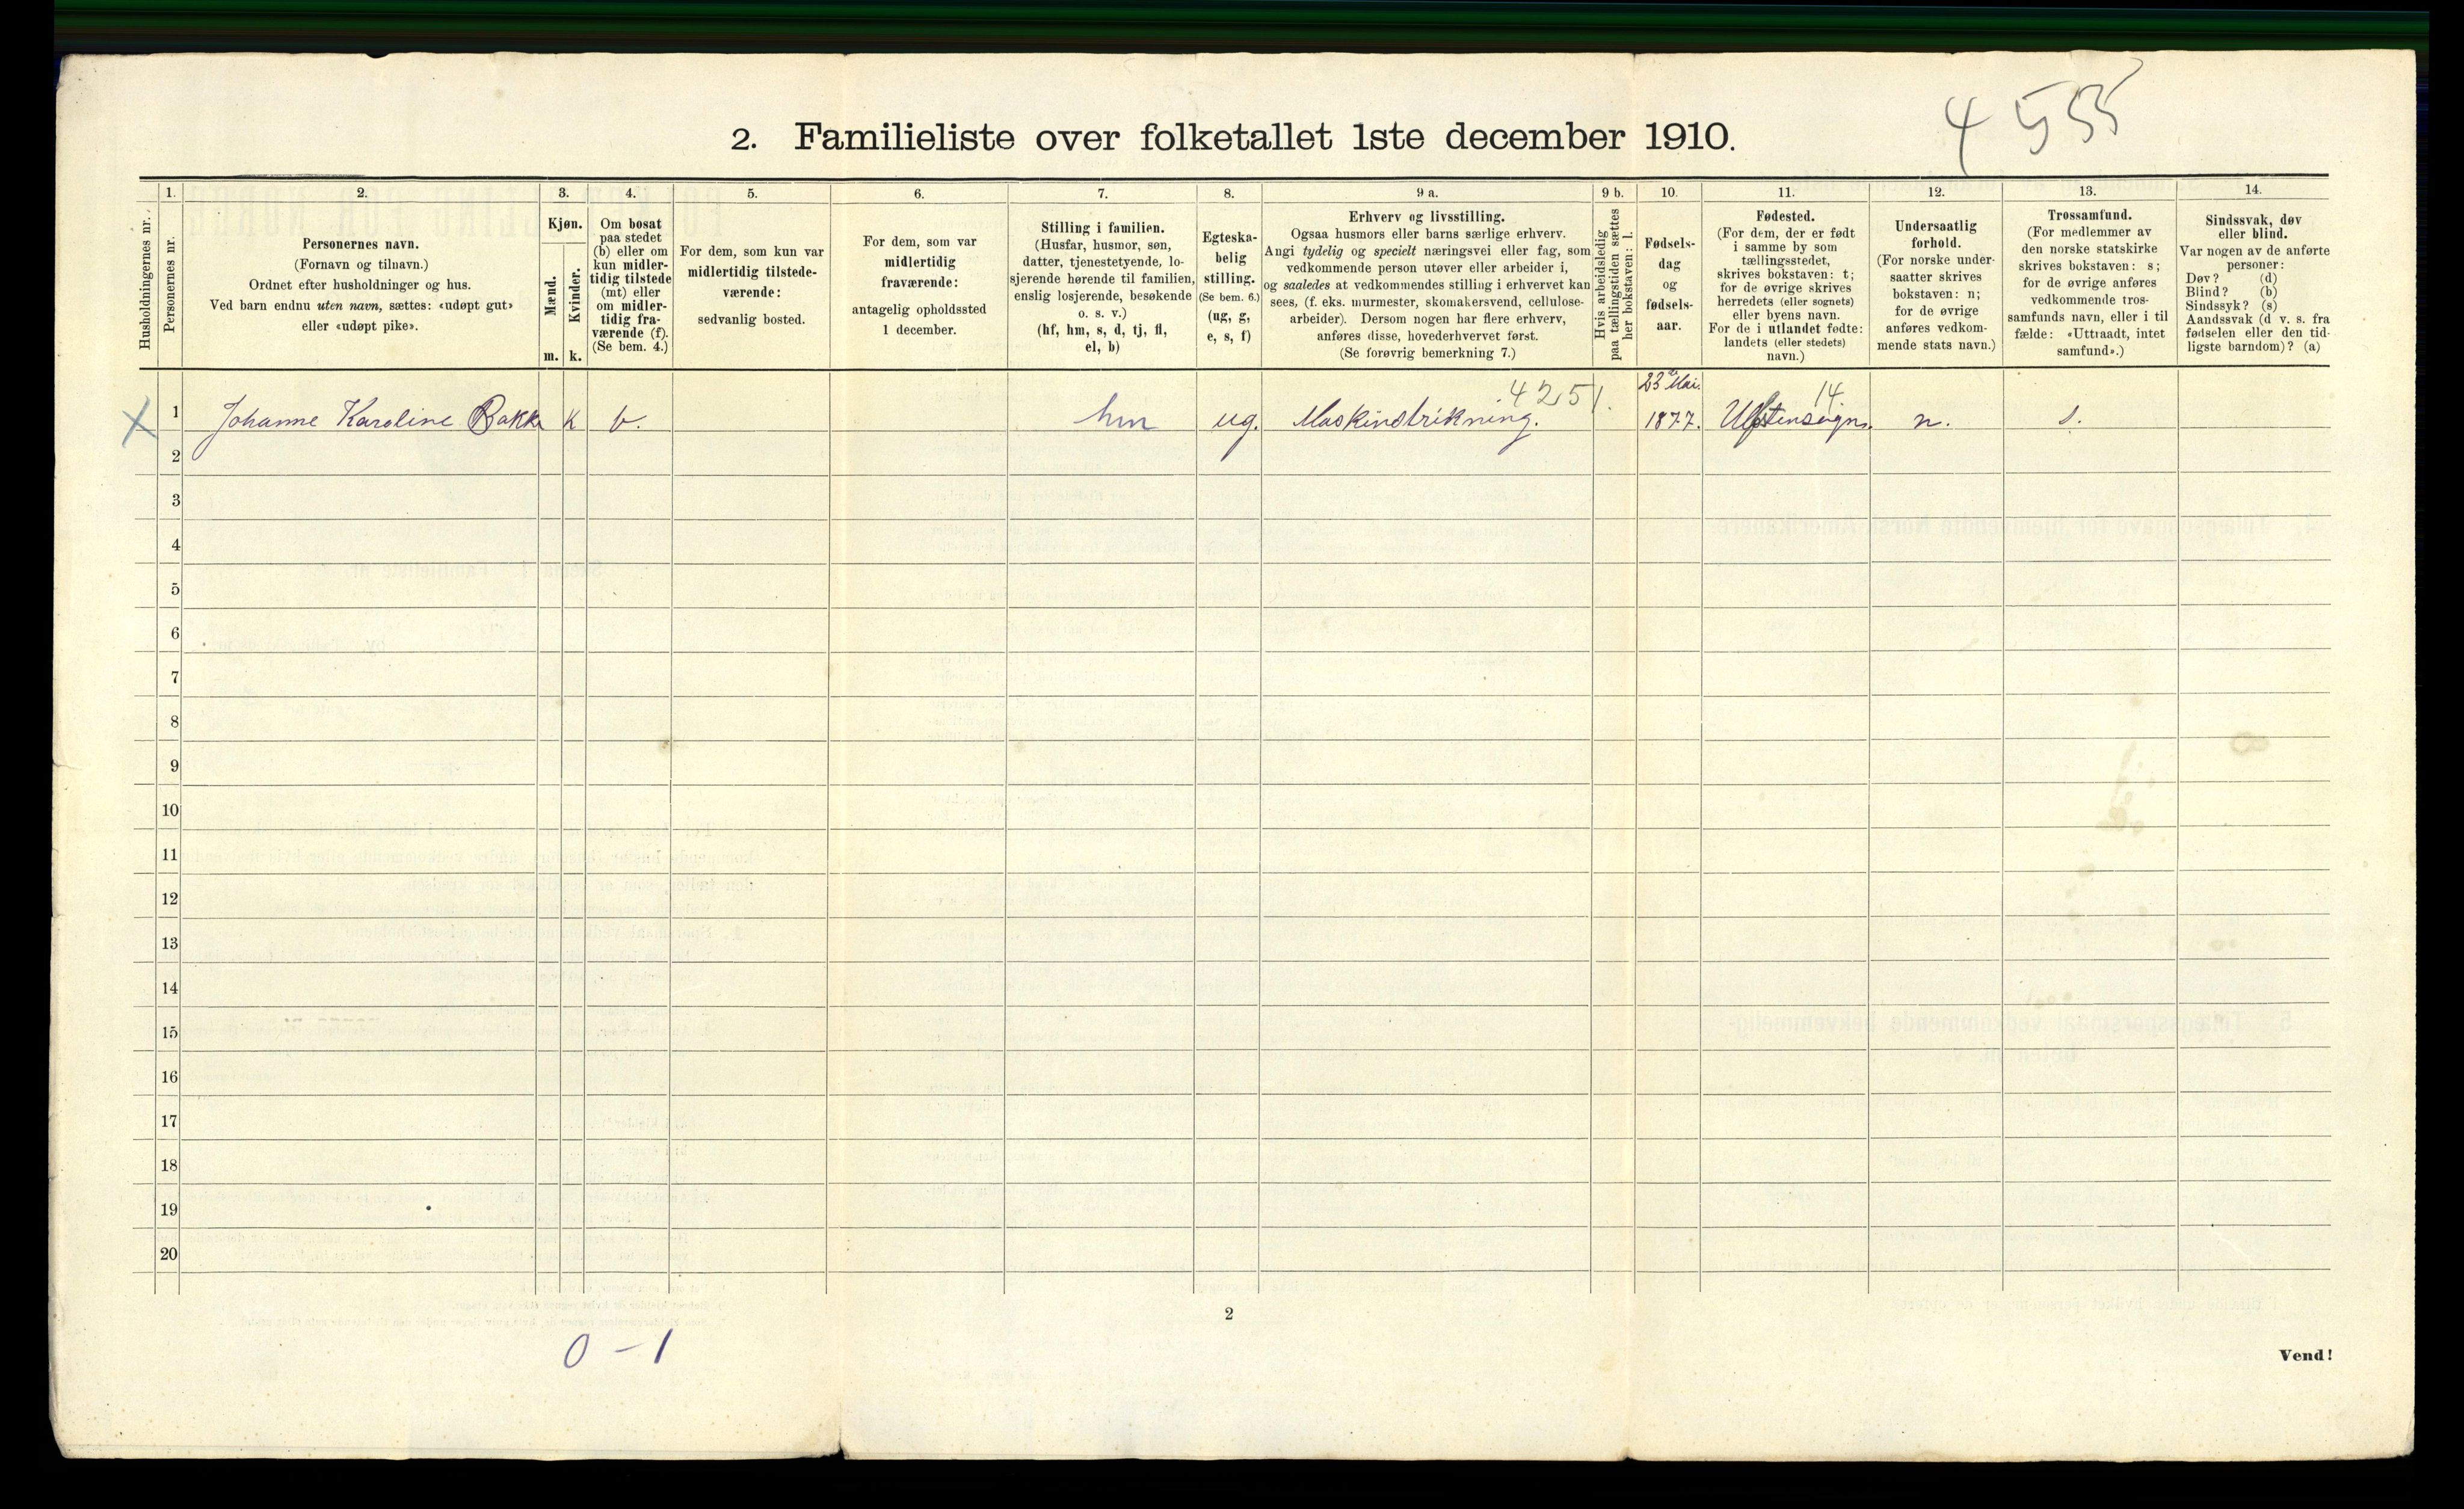 4 555
2. Familieliste over folketallet 1ste december 1910.
Husholdningernes nr.
1.
Personernes nr.
2.
Personernes navn.
(Fornavn og tilnavn.)
Ordnet efter husholdninger og hus.
Ved barn endnu uten navn, sættes: «udøpt gut»
eller «udøpt pike».
3.
Kjøn.
Mænd.
Kvinder.
m.
k.
4.
Om bosat
paa stedet
(b) eller om
kun midler-
tidig tilstede
(mt) eller
om midler-
tidig fra-
værende (f).
(Se bem. 4.)
5.
For dem, som kun var
midlertidig tilstede-
værende:
sedvanlig bosted.
6.
For dem, som var
midlertidig
fraværende:
antagelig opholdssted
1 december.
7.
Stilling i familien.
(Husfar, husmor, søn,
datter, tjenestetyende, lo-
sjerende hørende til familien,
enslig losjerende, besøkende
o. s. v.)
(hf, hm, s, d, tj, fl,
el, b)
8.
Egteska-
belig
stilling.
(Se bem. 6.)
(ug, g,
e, s, f)
9 a.
Erhverv og livsstilling.
Ogsaa husmors eller barns særlige erhverv.
Angi tydelig og specielt næringsvei eller fag, som
vedkommende person utøver eller arbeider i,
og saaledes at vedkommendes stilling i erhvervet kan
sees, (f. eks. murmester, skomakersvend, cellulose-
arbeider). Dersom nogen har flere erhverv,
anføres disse, hovederhvervet først.
(Se forøvrig bemerkning 7.)
9 b.
Hvis arbeidsledig
paa tællingstiden sættes
her bokstaven: l.
10.
Fødsels-
dag
og
fødsels-
aar.
11.
Fødested.
(For dem, der er født
i samme by som
tællingsstedet,
skrives bokstaven: t;
for de øvrige skrives
herredets (eller sognets)
eller byens navn.
For de i utlandet fødte:
landets (eller stedets)
navn.)
12.
Undersaatlig
forhold.
(For norske under-
saatter skrives
bokstaven: n;
for de øvrige
anføres vedkom-
mende stats navn.)
13.
Trossamfund.
(For medlemmer av
den norske statskirke
skrives bokstaven: s;
for de øvrige anføres
vedkommende tros-
samfunds navn, eller i til
fælde: «Uttraadt, intet
samfund».)
14.
Sindssvak, døv
eller blind.
Var nogen av de anførte
personer:
Døv? (d)
Blind? (b)
Sindssyk? (s)
Aandssvak (d v. s. fra
fødselen eller den tid-
ligste barndom)? (a)
4251. 23de Mai. 14
X 1 Johanne Karoline Bakke K b. hm ug. Maskinstrikning. 1877. n. s.
2
3
4
5
6
7
8
9
10
11
12
13
14
15
16
17
18
19
20
2
0 - 1
Vend!